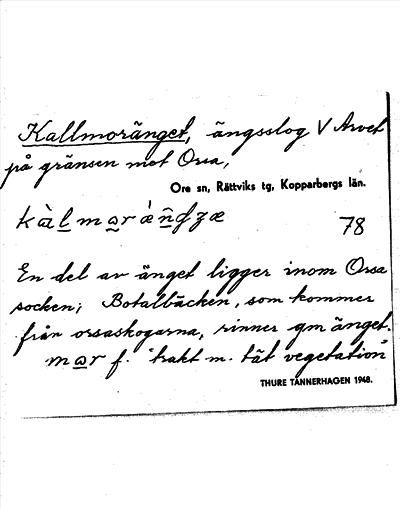 Kallmoränget, ängsslog V Arvet
på gränsen mot Orsa,
Ore sn, Rättviks tg, Kopparbergs län.
78
En del av änget ligger inom Orsa
socken; Botalbäcken, som kommer
från orsaskogarna, rinner gm änget.
mar f. "trakt m. tät vegetation"
THURE TANNERHAGEN 1948.